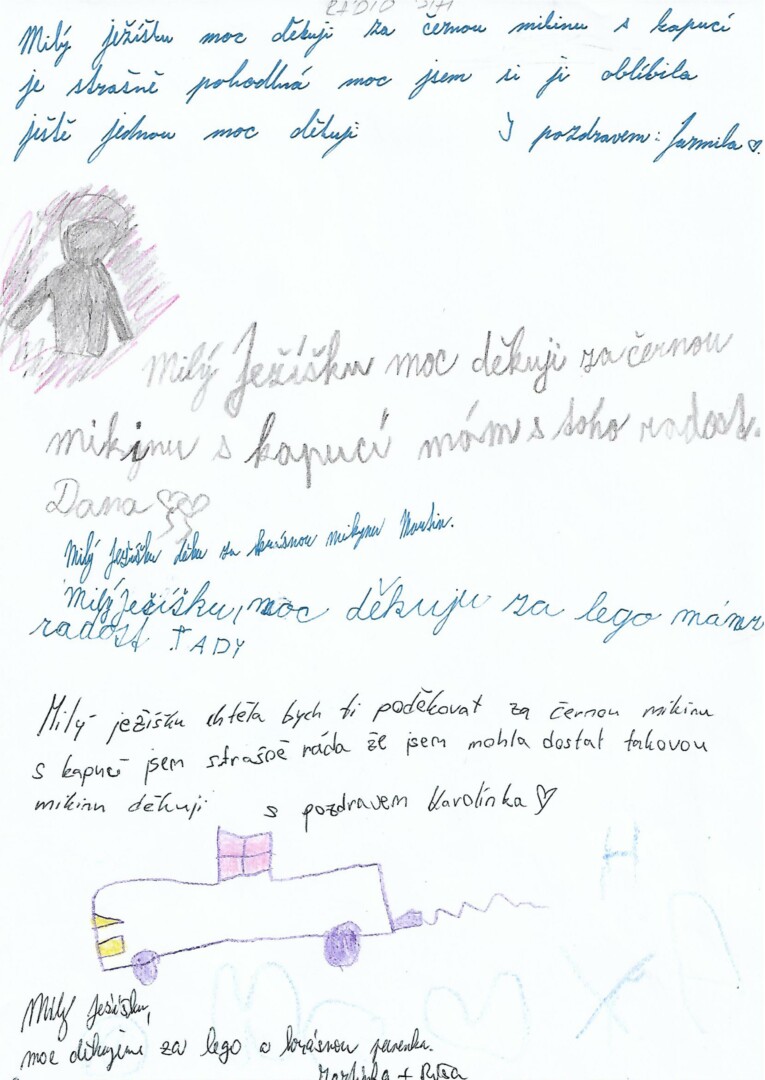 RADIO
Milý ježíšku moc děkuji za černou mikinu s kapucí
je strašně pohodlná moc jsem si ji oblíbila
ještě jednou moc děkuji S pozdravem: Jarmila
Milý Ježíšku moc děkuji za černou
mikinu s kapucí mám s toho radost.
Dana
Milý Ježíšku děku za krásnou mikynu Martin.
Milý Ježíšku, moc děkuju za lego mám
radost TADY
Milý ježíšku chtěla bych ti poděkovat za černou mikinu
s kapucí jsem strašně ráda že jsem mohla dostat takovou
mikinu děkuji s pozdravem Karolínka
Milý Ježíšku,
moc děkujeme za lego a krásnou